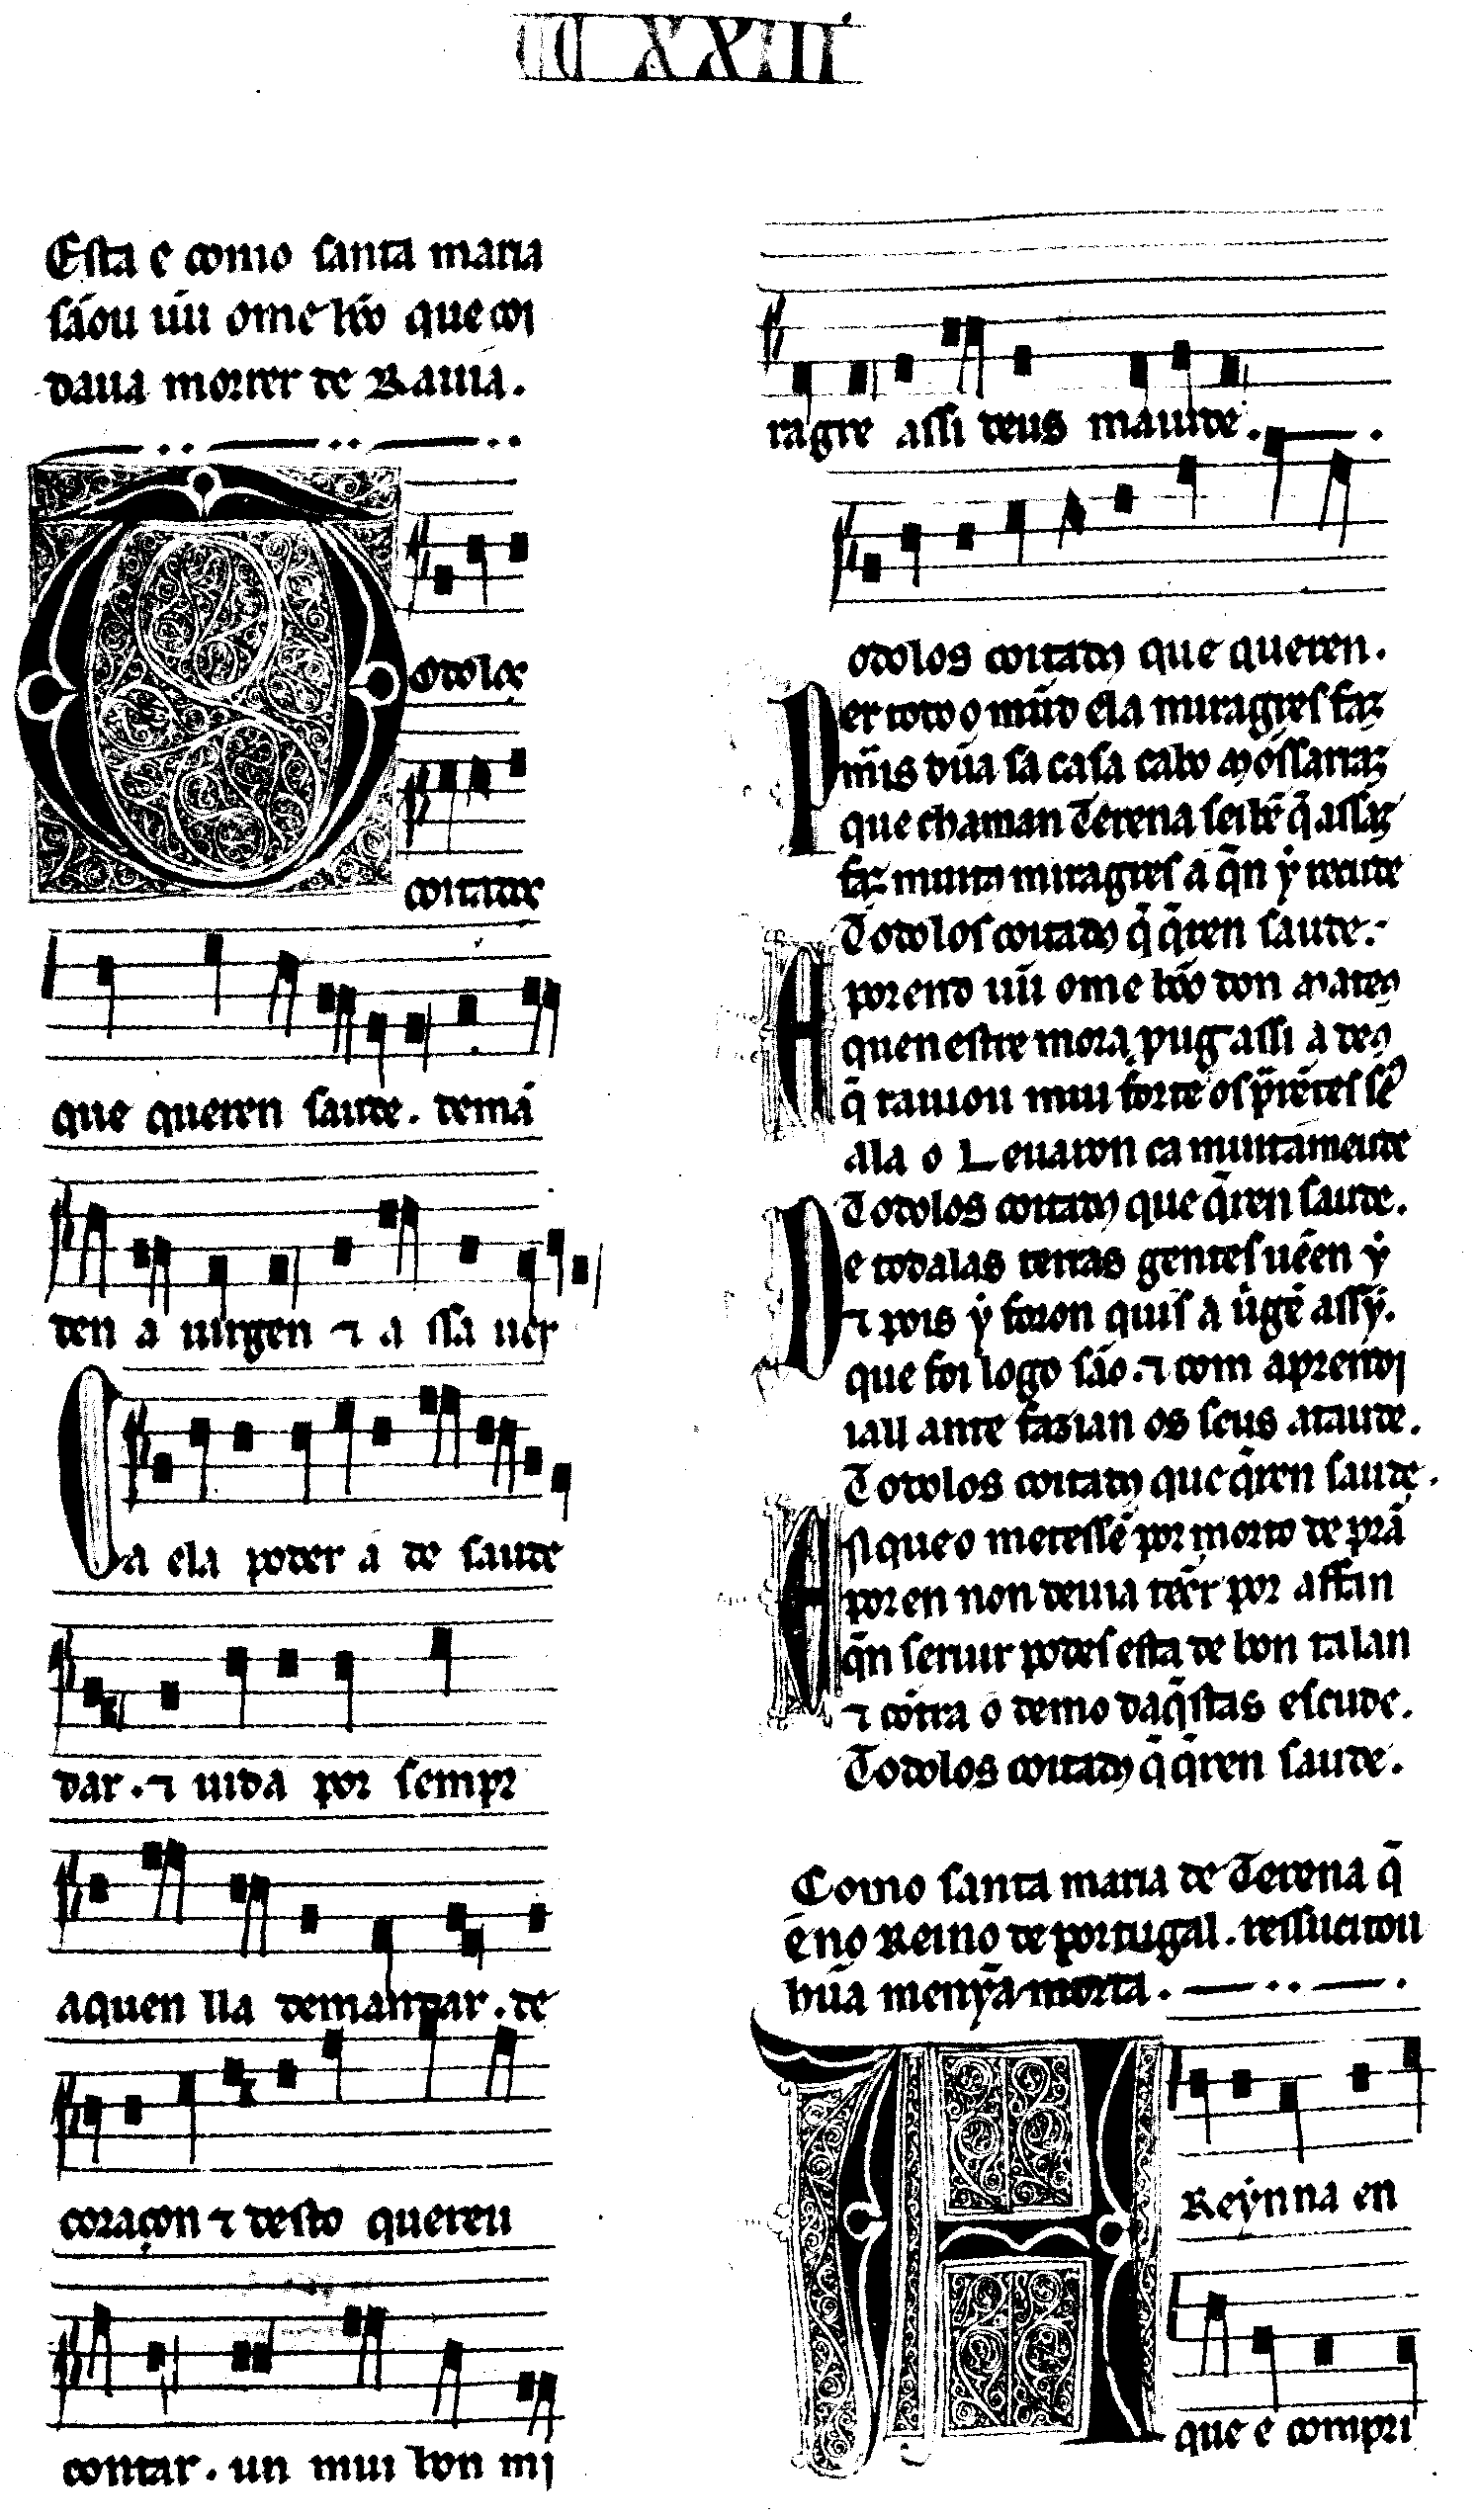 C XXIII
Esta e como santa maria
sãou ũu ome bõo que coi
daua morrer de Rauia.
Todolos
coitados
que queren saude. demã
den a uirgen ⁊ a ssa uer
Ca ela poder á de saude
dar. ⁊ uida por sempr
aquen lla demandar. de
coraçon ⁊ desto quereu
contar. un mui bon mi
ragre assi deus maiude.
odolos coitados que queren.
Per todo o mũd ela miragres faz
mais dũa sa casa cabo Mõssarraz
que chaman Terena sei bẽ q̃ assaz
faz muitos miragres a q̃n y recude
Todolos coitados q̃ q̃ren saude.
A porend ũu ome bõo don Mateus
quen estremora pug assi a deus
q̃ rauiou mui forte os p̃rẽtes seus
ala o Leuaron ca muitameude
Todolos coitados que q̃ren saude.
De todalas terras gentes uẽen y
⁊ pois y foron quis a uirgẽ assy.
que foi logo são. ⁊ com aprendi
iall ante fazian os seus ataude.
Todolos coitados que q̃ren saude.
Assi que o metessẽ por morto de prã
por en non deuia tẽer por affan
q̃n seruir podesesta de bon talan
⁊ contra o demo daq̃stas escude.
Todolos coitados q̃ q̃ren saude.
Como santa maria de Terena q̃
é no Reino de portugal. ressucitou
hũa menỹa morta.
A Reynna en
que e compri